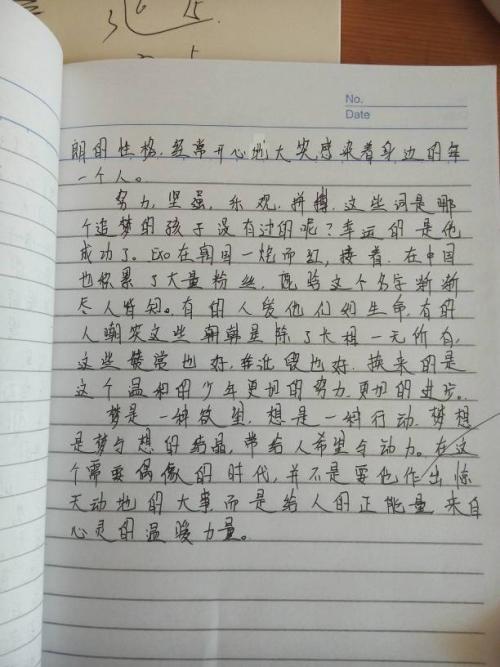 3 6 15
5
No.
Date
朗的性格,经常开心地大笑,感染着身边的每
一个人。
努力,坚强,乐观,拼搏,这些词是哪
个追梦的孩子没有过的呢?幸运的是他
成功了。Exo在韩国一炮而红,接着,在中国
也积累了大量粉丝,鹿晗这个名字渐渐
尽人皆知。有的人爱他们如生命,有的
人嘲笑这些韩星除了长相一无所有,
这些赞赏也好,诋毁也好,换来的是
这个温和的少年更加的努力,更加的进步。
梦是一种欲望,想是一种行动,梦想
是梦与想的结晶,带给人希望与动力。在这
个需要偶像的时代,并不是要他作出惊
天动地的大事,而是给人的正能量,来自
心灵的温暖力量。